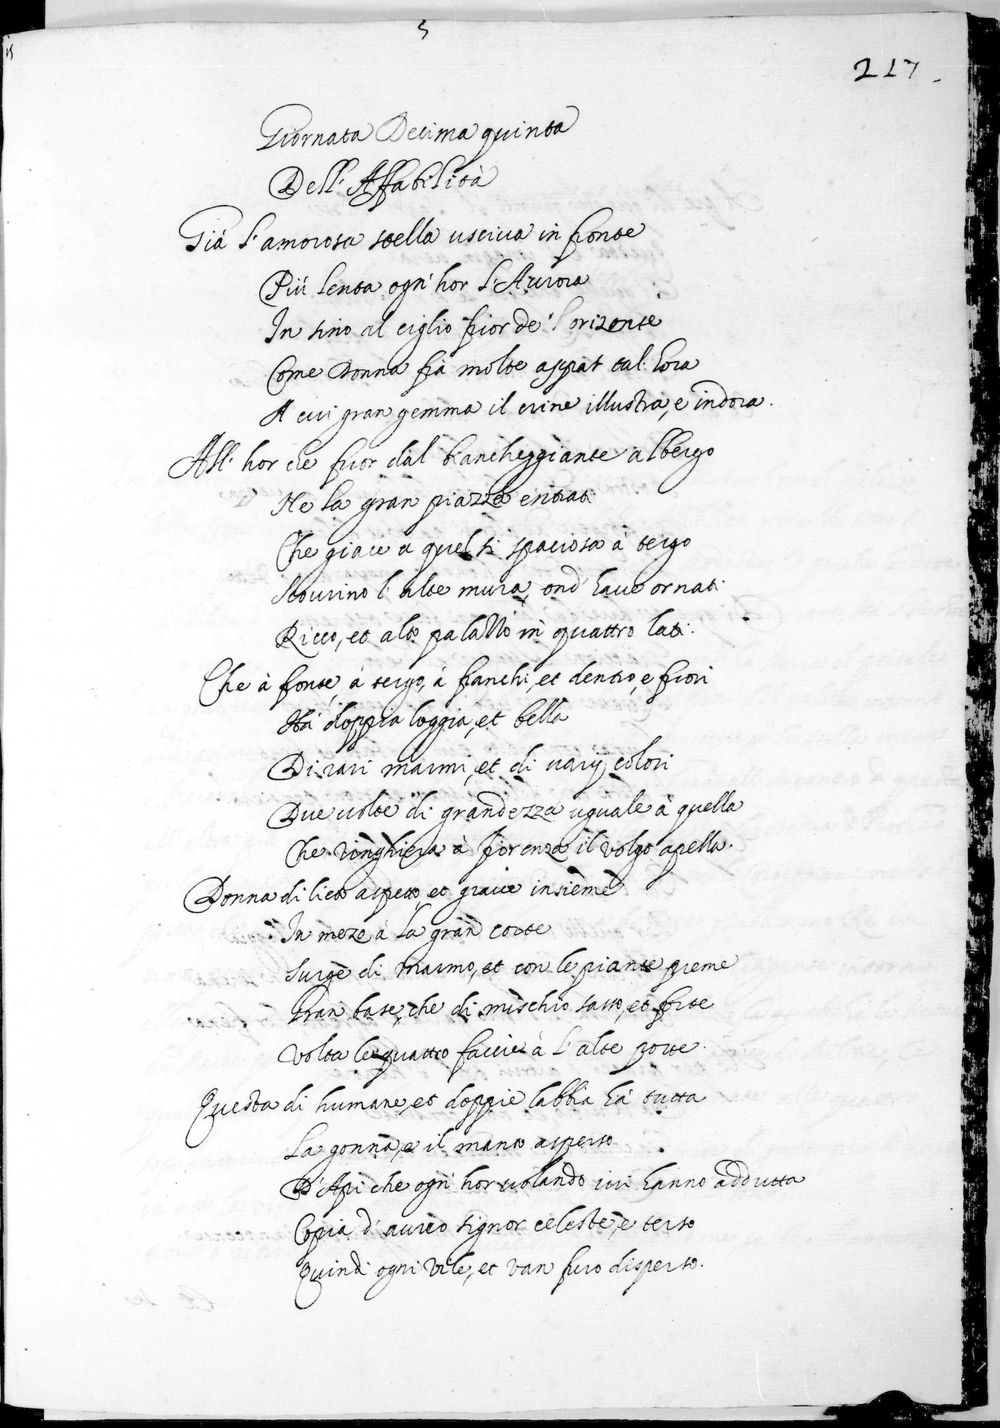 217
Giornata Decima quinta
Dell'Affabilità
Già l'amorosa stella usciva in fronte
Più lenta ogn'hor l'Aurora
In sino al ciglio fior de l'orizonte
Come Donna frà molte appar tal'hora
A cui gran gemma il crine illustra, e indora.
All'hor che fuor dal biancheggiante albergo
Ne la gran piazza entrati
Che giace a quel sì spaciosa à tergo
Scourino l'alte mura, ond'haue ornati
Ricco, et alto palazzo in quattro lati.
Che à fronte, à tergo, à fianchi, et dentro, e fuori
Hà doppia loggia, et bella
Di rari marmi, et di varij colori
Due volte di grandezza uguale à quella
Che ringhiera à Fiorenza il volgo apella.
Donna di lieto aspetto, et graue insieme
In mezo à la gran corte
Surge di marmo, et con le piante preme
Gran base, che di mischio sasso, et forte
Volta le quattro faccie à l'alte porte.
Questa di humane, et doppie labbia hà tutta
La gonna, e il manto asperso
D'Api che ogn'hor volando ivi hanno addutta
Copia d'aureo licor celeste, e terso
Quindi ogni vile, et van furo disperso.